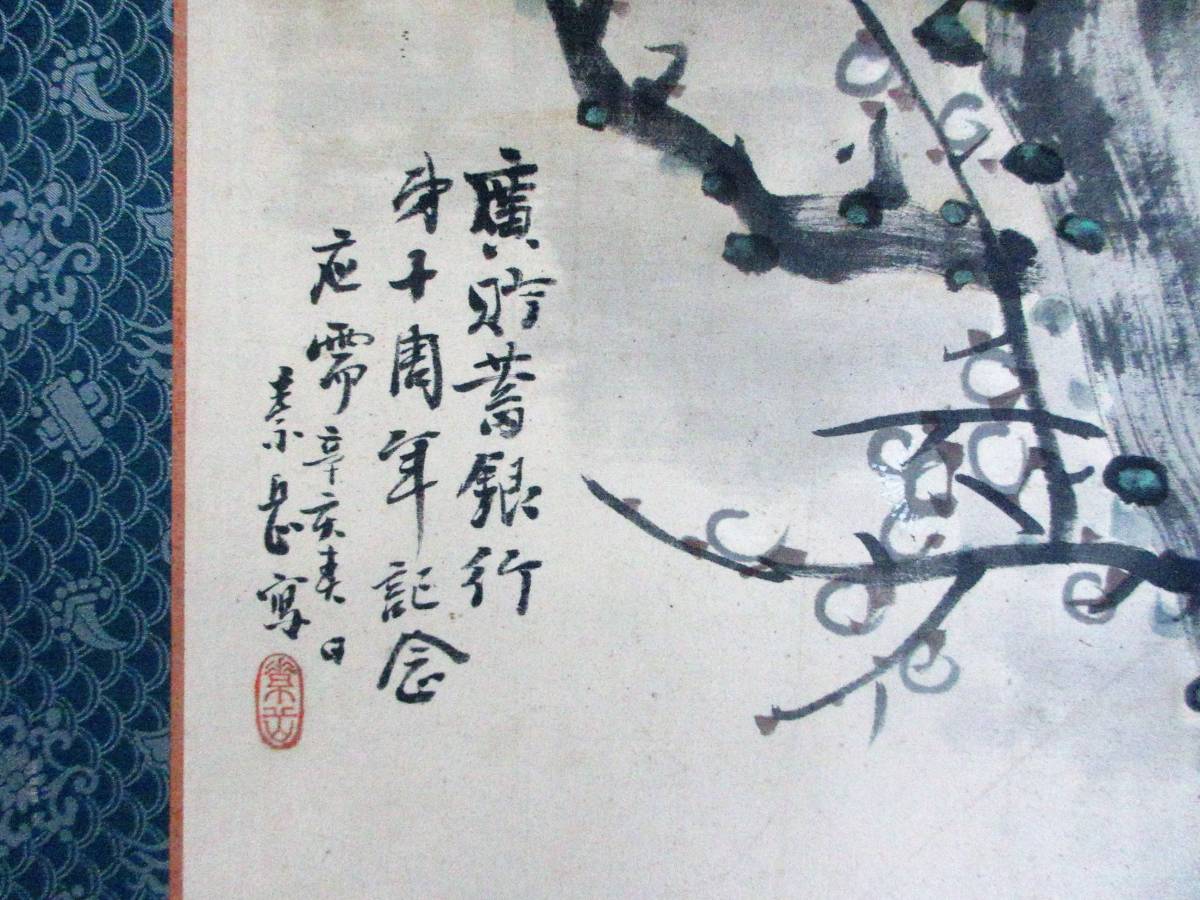 廣貯蓄銀行
第十周年記念
應需辛亥春日
素岳寫
素岳